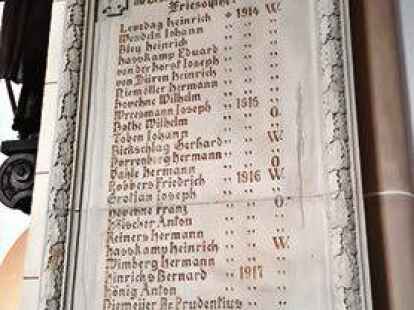 Friesoythe.
Levedag Heinrich " 1914 W.
Wendeln Johann " " "
Bley Heinrich " " "
Hasskamp Eduard " " "
von der Horst Joseph " " "
von Düren Heinrich " " "
Niemöller Hermann " " "
Hovehne Wilhelm " " "
Wreesmann Joseph " 1915 O.
Bothe Wilhelm " " "
Toben Johann " " W.
Bickschlag Gerhard " " "
Dorrenberg Hermann " " O.
Dahle Hermann " " "
Robbers Friedrich " 1916 W.
Grotjan Joseph " " "
Hovehne Franz " " O.
Anton " " "
Reiners Hermann " " "
Hasskamp Heinrich " " W.
Wimberg Hermann " " "
Hinrichs Bernard " 1917 "
König Anton " " "
Niemeijer Br. Prudentius " " "